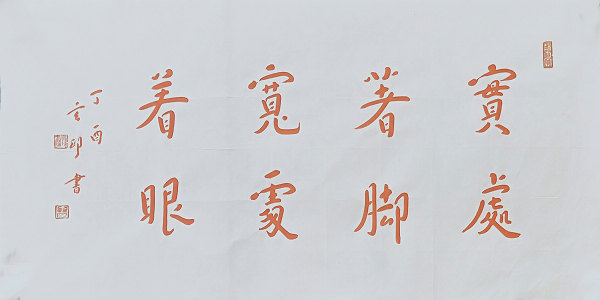 實處
著脚
寬處
着眼
丁酉
印書